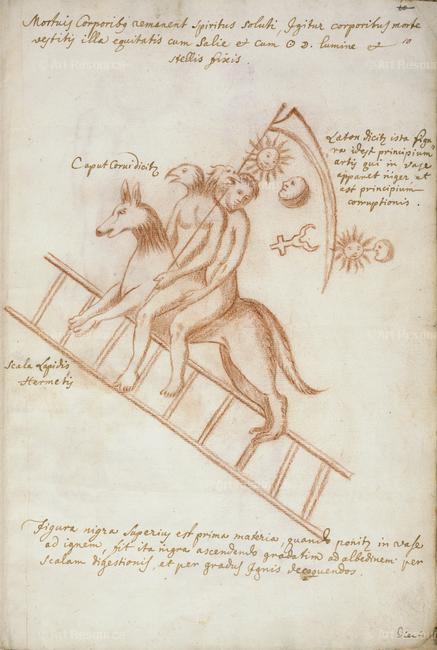 Mortuis Corporibq remanent Spiritus Soluti, Igitur corporibus morte
vestitis illa equitatis cum Salie et cum ☉ ☽. lumine et
stellis fixis.
10
Laton dicitz ista figu-
ra idest principium
artis qui in vase
apparet niger et
est principium
corruptionis.
Caput Corui dicitz
Scala Lapidis
Hermetis
Figura nigra Superius est prima materia, quando ponitz in vase
ad ignem, fit ita nigra ascendendo gradatim ad albedinem per
Scalam digestionis, et per gradus Ignis decoquendos.
© Art Resource